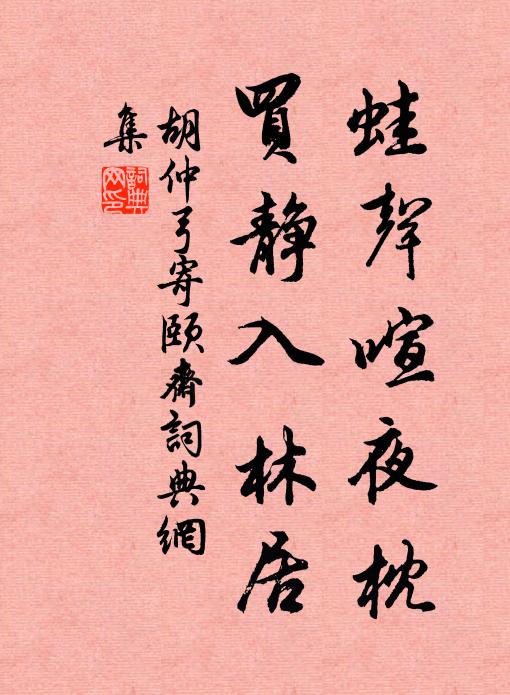 蛙聲喧夜枕
買静入林居
胡仲弓寄頤齋詞典網
集
詞典網印